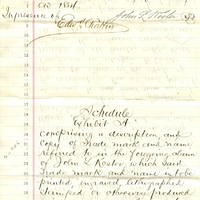 Oct 1884.
In presence of
John L. Kester
Schedule
Exhibit A
Comprising a description and
Copy of Trade mark and name
referred to in the foregoing claim
of John L Kester, which said
Trade mark and name is to be
printed, engraved, lithographed
Stamped or otherwise produced